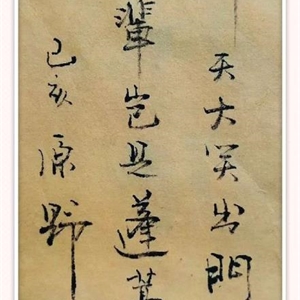 天大笑出門
輩豈是蓬蒿
己亥 原野